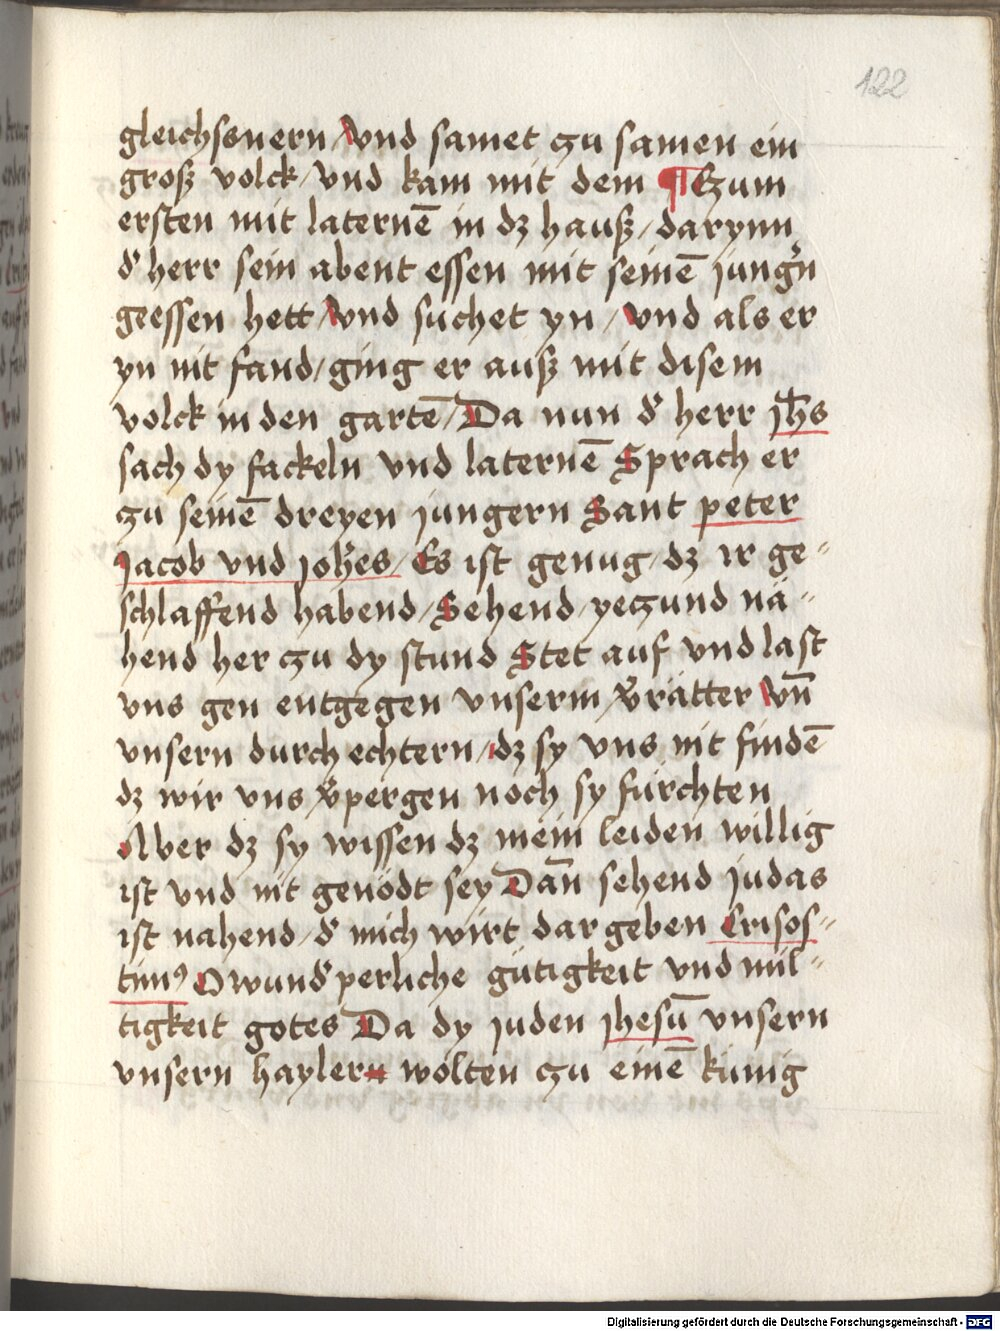 122
gleichsnern / Vnd samet zu samen ein
groß volck / vnd kam mit dem ¶ Czum
ersten mit laternē in dz hauß / darynn
d̕ herr sein abent essen mit seinē jung̕n
geessen hett / Vnd suchet yn / Vnd als er
yn nit fand / ging er auß mit disem
volck in den gartē / Da nun d̕ herr jh̄s
sach dy fackeln vnd laternē Sprach er
zu seinē dreyen jungern Sant peter
Jacob vnd joh̄es / Es ist genug / dz ir ge⸗
schlaffend habend / Sehend / yeczund nä⸗
hend her zu dy stund Stet auf vnd last
vns gen entgegen vnserm / v̕rätter Vn̄
vnsern durchechtern / dz sy vns nit findē
dz wir vns v̕pergen noch sy fürchten
Aber dz sy wissen dz mein leiden willig
ist vnd nit genödt sey Dan̄ sehend judas
ist nahend / d̕ mich wirt dargeben Crisos⸗
timꝰ O wund̕perliche gütigkeit vnd mil⸗
tigkeit gotes Da dy juden jhesū vnsern
vnsern hayler wolten zu einē künig
Digitalisierung gefördert durch die Deutsche Forschungsgemeinschaft - DFG